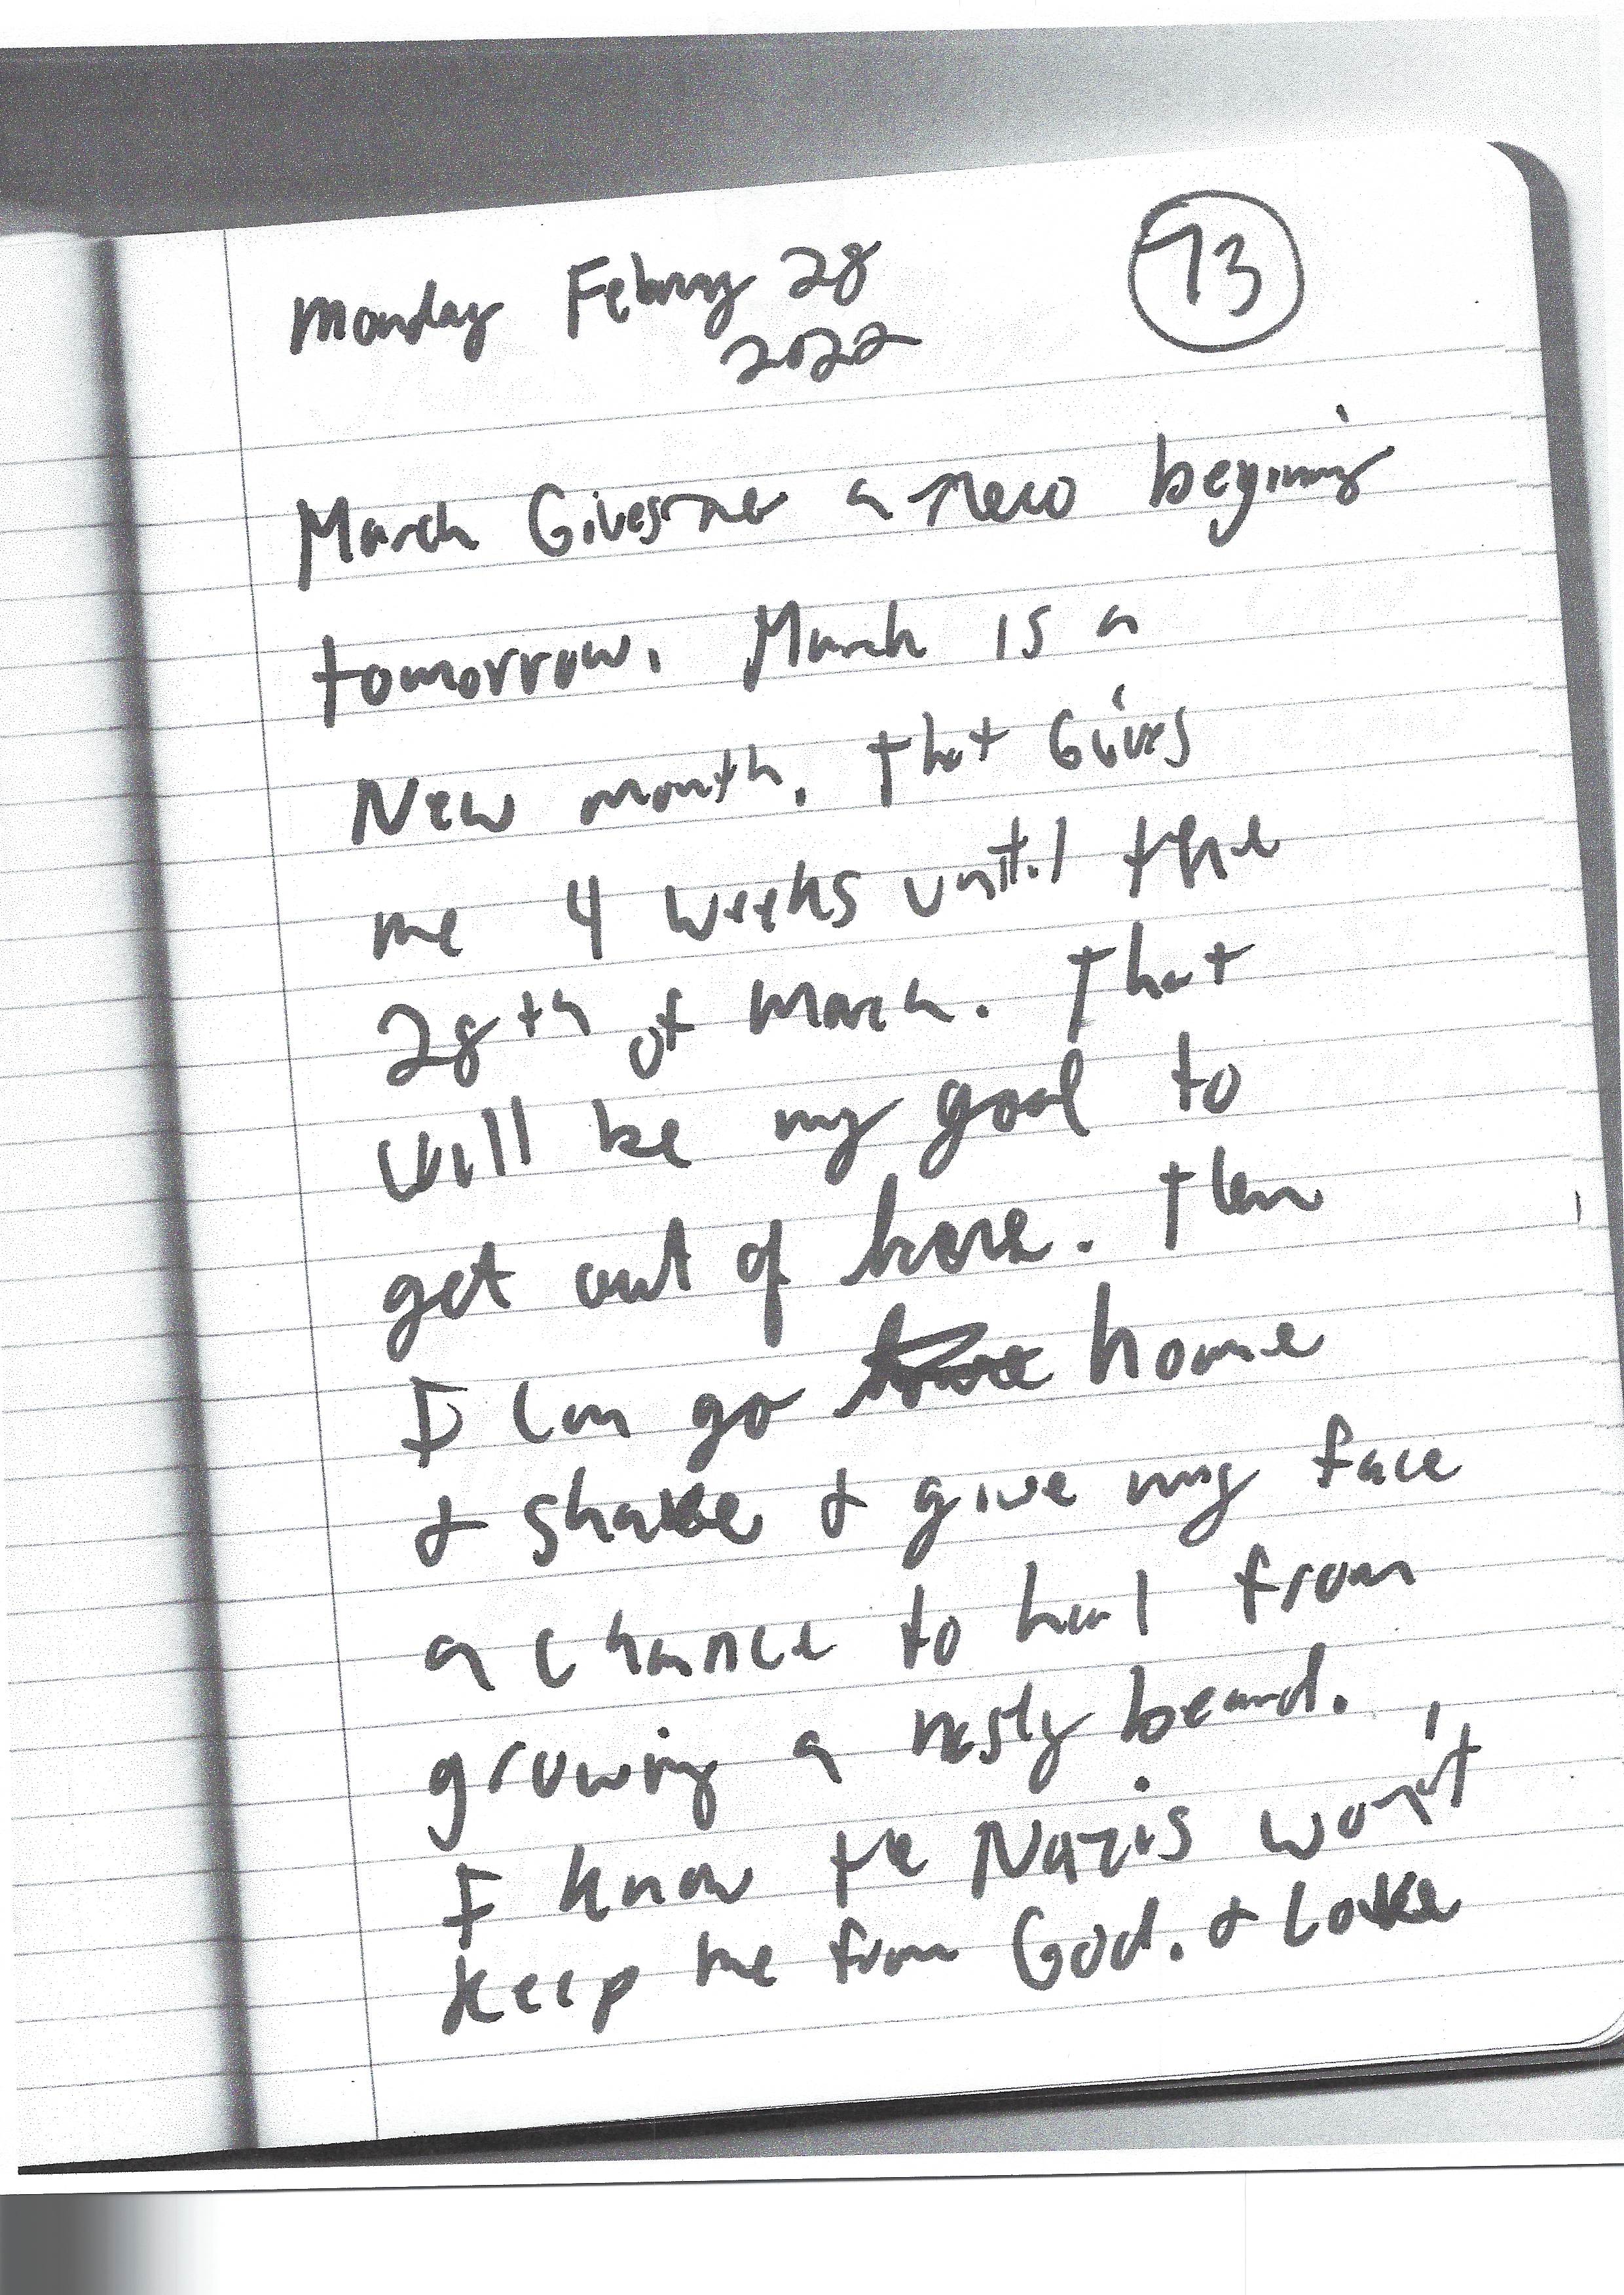 Monday Februay 28
2022
73
March Gives me a new begining
tomorrow. March is a
New month. That Gives
me 4 weeks until the
28th of March. That
will be my goal to
get out of here. Then
I can go home
& shave & give my face
a chance to heal from
growing a nasty beard.
I know the Nazis won't
keep me from God. &